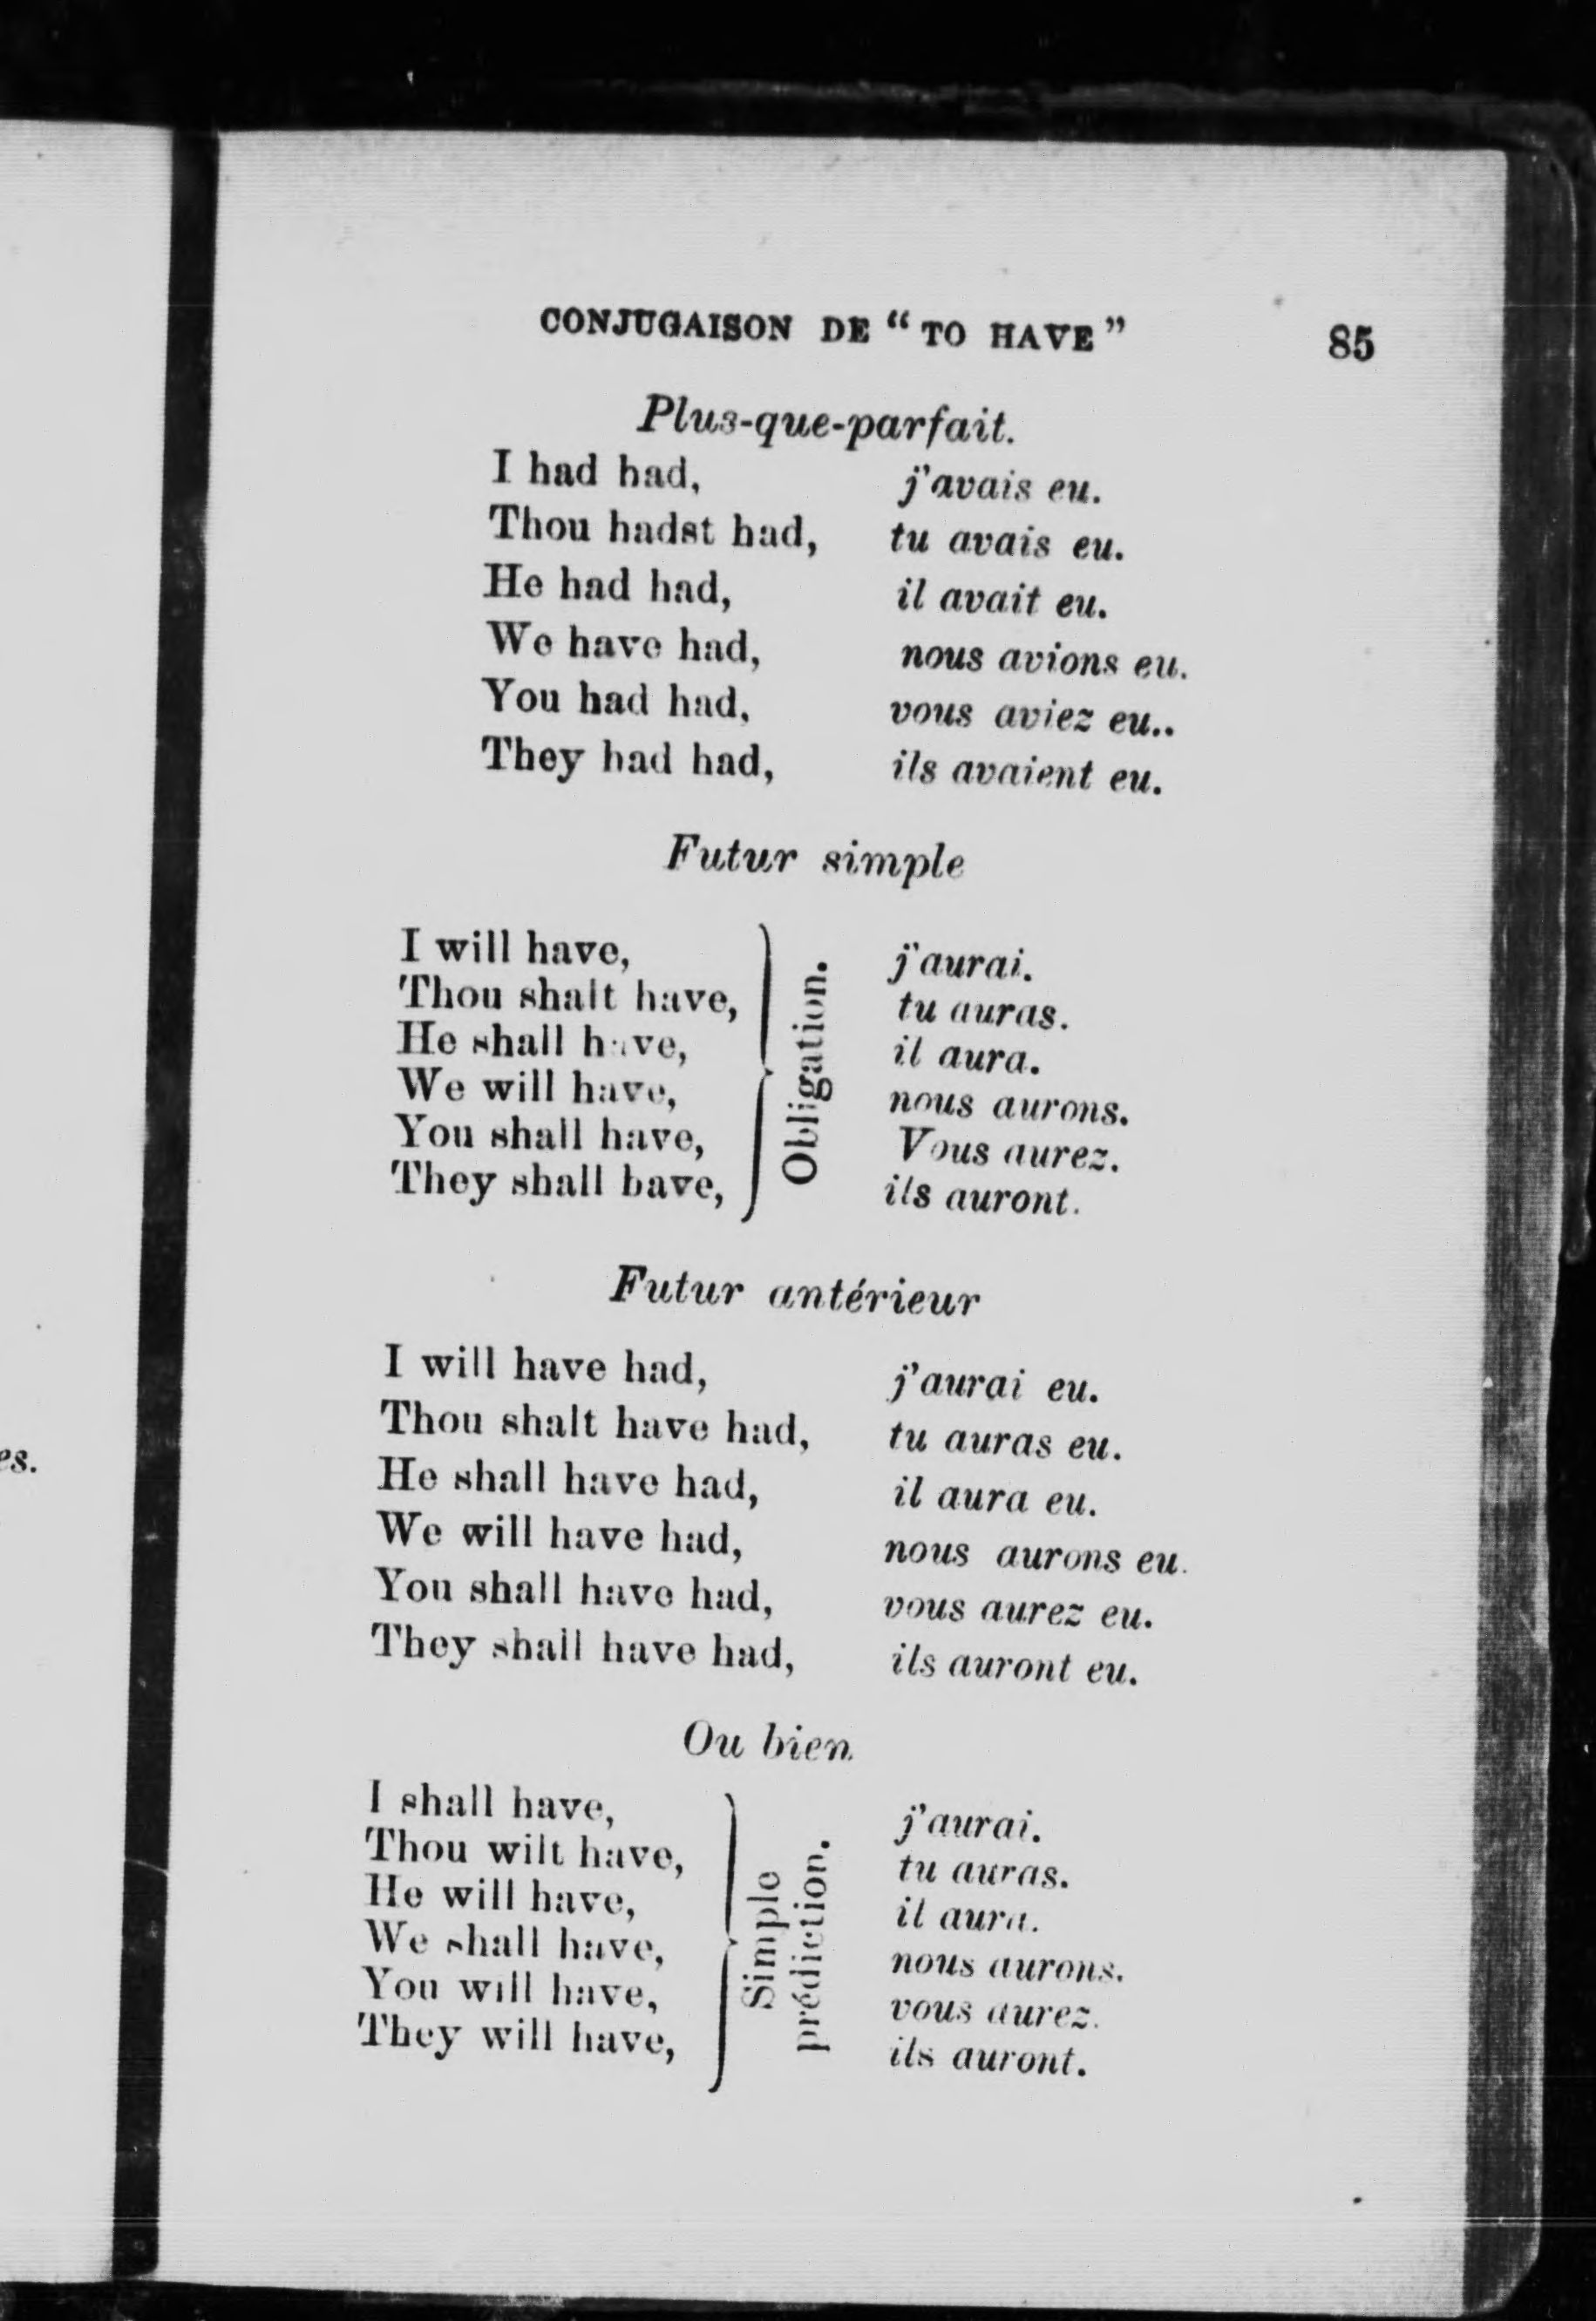 CONJUGAISON DE “ TO HAVE ” 85
Plus-que-parfait.
I had had, j'avais eu.
Thou hadst had, tu avais eu.
He had had, il avait eu.
We have had, nous avions eu.
You had had, vous aviez eu..
They had had, ils avaient eu.
Futur simple
I will have, j'aurai.
Thou shalt have, tu auras.
He shall have, il aura.
We will have, nous aurons.
You shall have, Vous aurez.
They shall have, ils auront.
Obligation.
Futur antérieur
I will have had, j'aurai eu.
Thou shalt have had, tu auras eu.
He shall have had, il aura eu.
We will have had, nous aurons eu.
You shall have had, vous aurez eu.
They shall have had, ils auront eu.
es.
Ou bien
I shall have, j'aurai.
Thou wilt have, tu auras.
He will have, il aura.
We shall have, nous aurons.
You will have, vous aurez.
They will have, ils auront.
Simple
prédiction.